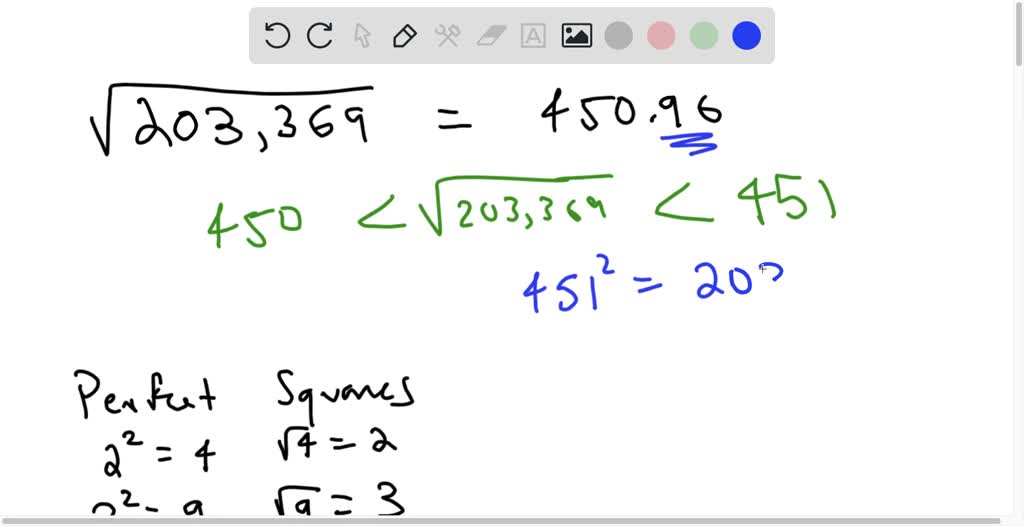 √203,369 = 450.96
450 < √203,369 < 451
451² = 20
Perfect Squares
2² = 4 √4 = 2
√9 = 3